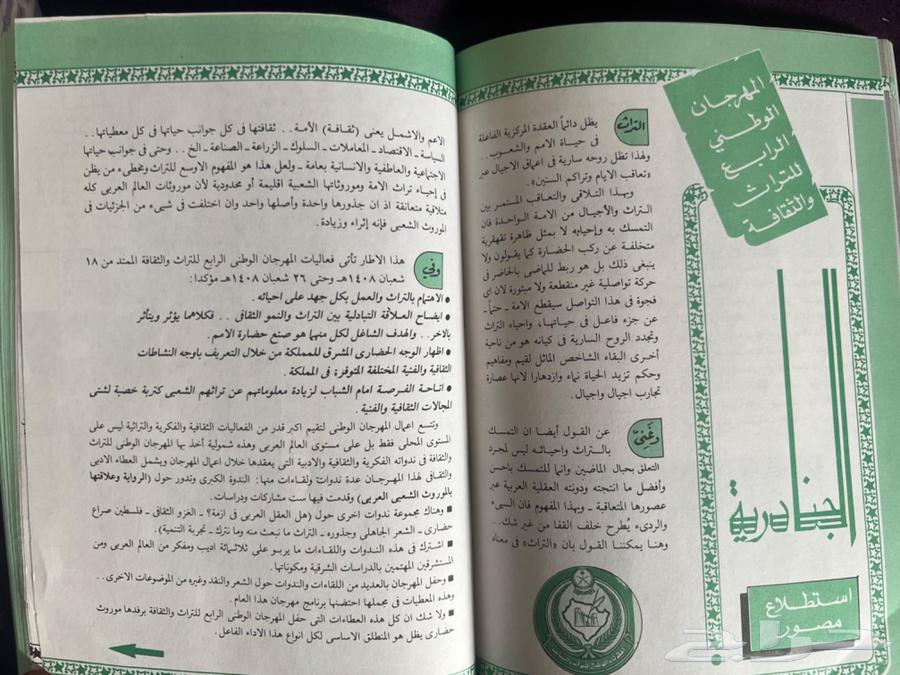 المهرجان
الوطني
الرابع
للتراث
والثقافة
الجنادرية
استطلاع
مصور
التراث
يظل دائماً العقدة المركزية الفاعلة
فى حياة الامم والشعوب..
ولهذا تظل روحه سارية فى اعماق الاجيال عبر
«تعاقب الايام وتراكم السنين».
وبهذا التلاقى والتعاقب المستمر بين
التراث والأجيال من الامة الواحدة فان
التمسك به وإحياءه لا يمثل ظاهرة تقهقرية
متخلفة عن ركب الحضارة كما يقولون ولا
ينبغى ذلك بل هو ربط للماضى بالحاضر فى
حركة تواصلية غير منقطعة ولا مبتورة لان اى
فجوة فى هذا التواصل سيقطع الامة ـ حتماً ـ
عن جزء فاعل فى حياتها، واحياء التراث
وتجدد الروح السارية فى كيانه هو من ناحية
أخرى البقاء الشاخص الماثل لقيم ومفاهيم
وحكم تزيد الحياة نماء وازدهارا لانها عصارة
تجارب اجيال واجيال.
وغنيّ
عن القول أيضا ان التمسك
بالتراث واحيائه ليس لمجرد
التعلق بحبال الماضين وانما للتمسك باحسن
وأفضل ما انتجته ودونته العقلية العربية عبر
عصورها المتعاقبة ـ وبهذا المفهوم فان السىء
والردىء يُطرح خلف القفا من غير شك..
وهنا يمكننا القول بان «التراث» فى معناه
الاعم والاشمل يعنى (ثقافة) الأمة.. ثقافتها فى كل جوانب حياتها فى كل معطياتها..
السياسة ـ الاقتصاد ـ المعاملات ـ السلوك ـ الزراعة ـ الصناعة ـ الخ.. وحتى فى جوانب حياتها
الاجتماعية والعاطفية والانسانية بعامة ـ ولعل هذا هو المفهوم الاوسع للتراث ومخطىء من يظن
فى إحياء تراث الامة وموروثاتها الشعبية اقليمة أو محدودية لأن موروثات العالم العربى كله
متلاقية متعانقة اذ ان جذورها واحدة وأصلها واحد وان اختلفت فى شىء من الجزئيات فى
الموروث الشعبى فإنه إثراء وزيادة.
وفي
هذا الاطار تأتى فعاليات المهرجان الوطنى الرابع للتراث والثقافة الممتد من ١٨
شعبان ١٤٠٨هـ وحتى ٢٦ شعبان ١٤٠٨هـ مؤكدا:
● الاهتمام بالتراث والعمل بكل جهد على احيائه.
● ايضاح العلاقة التبادلية بين التراث والنمو الثقافى.. فكلاهما يؤثر ويتأثر
بالاخر.. والهدف الشاغل لكل منهما هو صنع حضارة الامم.
● اظهار الوجه الحضارى المشرق للمملكة من خلال التعريف باوجه النشاطات
الثقافية والفنية المختلفة المتوفرة فى المملكة.
● اتاحة الفرصة امام الشباب لزيادة معلوماتهم عن تراثهم الشعبى كتربة خصبة لشتى
المجالات الثقافية والفنية.
وتتسع اعمال المهرجان الوطنى لتقيم اكبر قدر من الفعاليات الثقافية والفكرية والتراثية ليس على
المستوى المحلى فقط بل على مستوى العالم العربى وهذه شمولية أخذ بها المهرجان الوطنى للتراث
والثقافة فى ندواته الفكرية والثقافية والادبية التى يعقدها خلال اعمال المهرجان ويشمل العطاء الادبى
والثقافى لهذا المهرجان عدة ندوات ولقاءات منها: الندوة الكبرى وتدور حول (الرواية وعلاقتها
بالموروث الشعبى العربى) وقدمت فيها ست مشاركات ودراسات.
■ وهناك مجموعة ندوات اخرى حول (هل العقل العربى فى ازمة؟ ـ الغزو الثقافى ـ فلسطين صراع
حضارى ـ الشعر الجاهلى وجذوره ـ التراث ما نبعث منه وما نترك ـ تجربة التنمية).
■ اشترك فى هذه الندوات واللقاءات ما يربو على ثلاثمائة اديب ومفكر من العالم العربى ومن
المستشرقين المهتمين بالدراسات الشرقية ومكوناتها.
■ وحفل المهرجان بالعديد من اللقاءات والندوات حول الشعر والنقد وغيره من الموضوعات الاخرى..
وهذه المعطيات فى مجملها احتضنها برنامج مهرجان هذا العام.
■ ولا شك ان كل هذه العطاءات التى حفل المهرجان الوطنى الرابع للتراث والثقافة برفدها موروث
حضارى يظل هو المنطلق الاساسى لكل انواع هذا الاداء الفاعل.
حراج